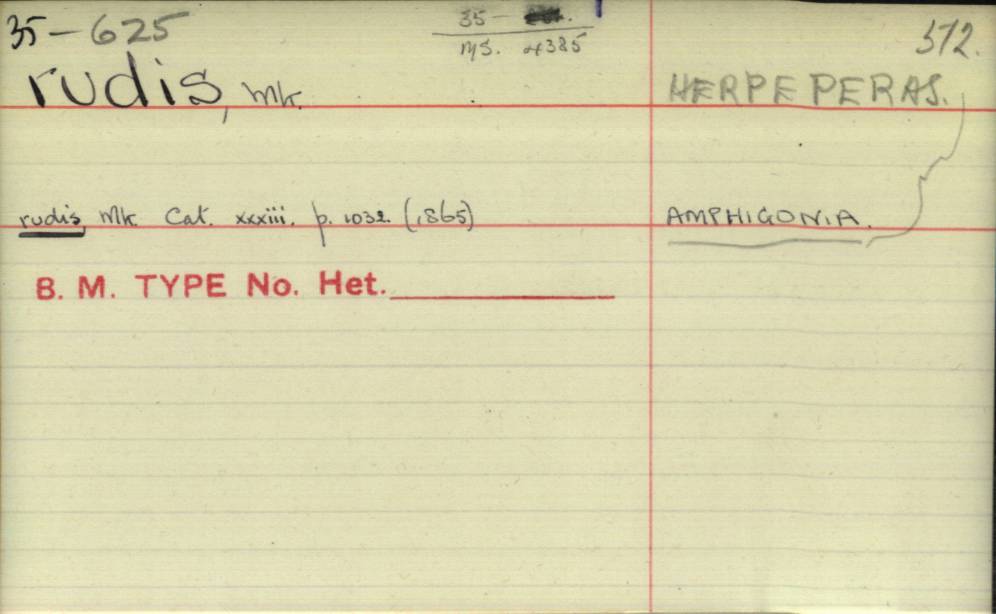 35-625
35-
MS. 4385
512.
rudis, Mk.
HERPEPERAS.
rudis, Mk. Cat. xxxiii. p. 1032. (1865)
AMPHIGONIA.
B. M. TYPE No. Het.